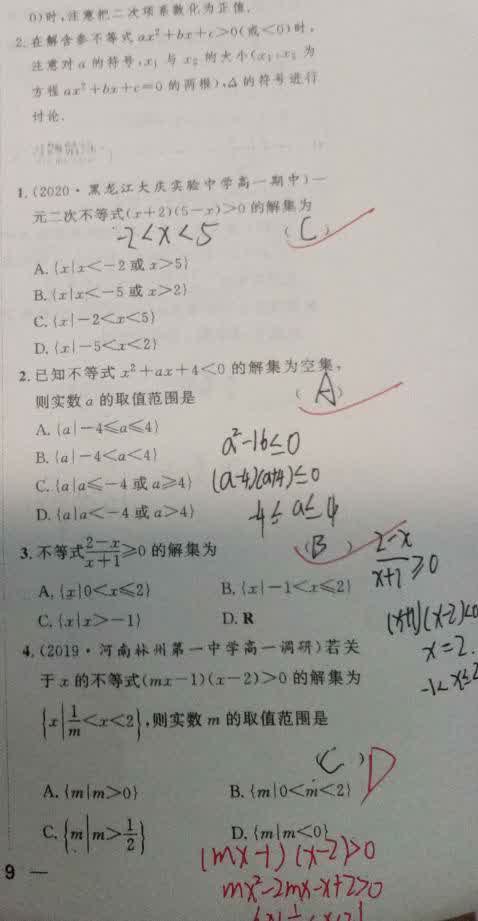 0)时,注意把二次项系数化为正值.
2.在解含参不等式ax²+bx+c>0(或<0)时,
注意对a的符号,x₁与x₂的大小(x₁,x₂为
方程ax²+bx+c=0的两根),Δ的符号进行
讨论.
1.(2020·黑龙江大庆实验中学高一期中)一
元二次不等式(x+2)(5-x)>0的解集为
-2<x<5 (C)
A.{x|x<-2或x>5}
B.{x|x<-5或x>2}
C.{x|-2<x<5}
D.{x|-5<x<2}
2.已知不等式x²+ax+4<0的解集为空集,
则实数a的取值范围是 (A)
A.{a|-4≤a≤4}
B.{a|-4<a<4}
C.{a|a≤-4或a≥4}
D.{a|a<-4或a>4}
a²-16≤0
(a-4)(a+4)≤0
-4≤a≤4
3.不等式(2-x)/(x+1)≥0的解集为 (B)
A.{x|0<x≤2} B.{x|-1<x≤2}
C.{x|x>-1} D.R
(2-x)/(x+1)≥0
(x+1)(x-2)<0
x=2.
-1<x≤2
4.(2019·河南林州第一中学高一调研)若关
于x的不等式(mx-1)(x-2)>0的解集为
{x|1/m<x<2},则实数m的取值范围是
(C) D
A.{m|m>0} B.{m|0<m<2}
C.{m|m>1/2} D.{m|m<0}
(mx-1)(x-2)>0
mx²-2mx-x+2>0
9 —